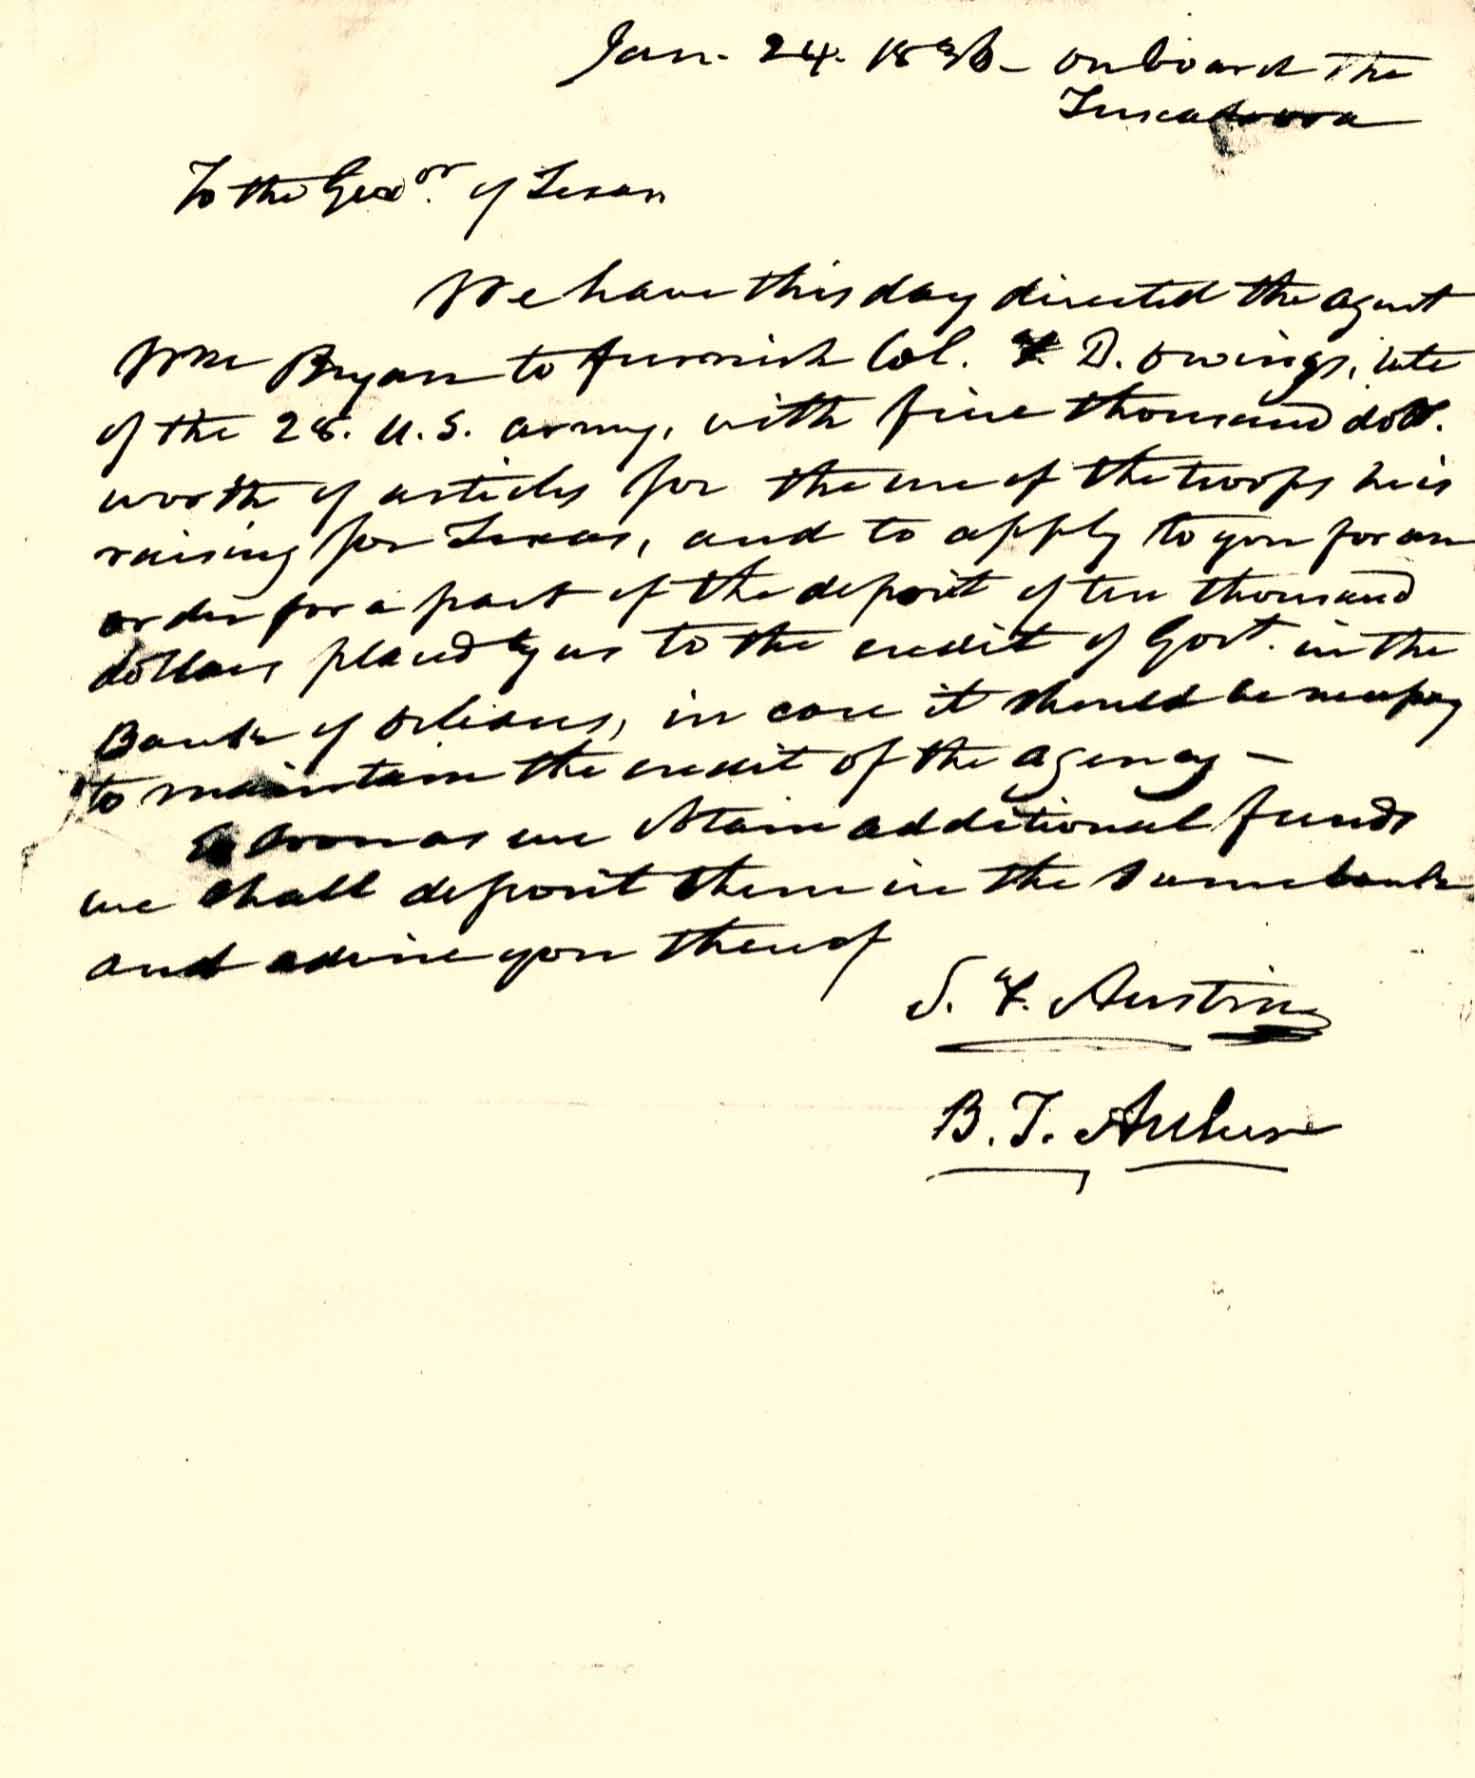 Jan. 24. 1836 - on board the
Tuscaloosa
To the Govor. of Texas
We have this day directed the agent
Wm Bryan to furnish Col. T. D. Owings, late
of the 28. U.S. army, with five thousand doll.
worth of articles for the use of the troops he is
raising for Texas, and to apply to you for an
order for a part of the deposit of ten thousand
dollars placed by us to the credit of Govt. in the
Bank of Orleans, in case it should be necessary
to maintain the credit of the agency -
As soon as we obtain additional funds
we shall deposit them in the same bank
and advise you thereof
S. F. Austin
B. T. Archer